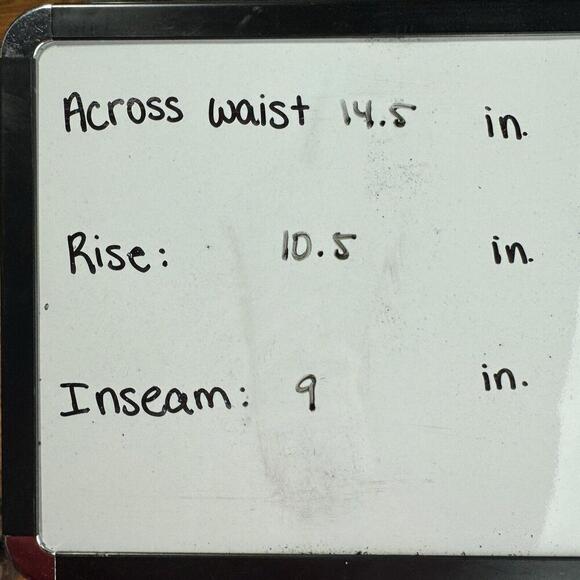 Across waist 14.5 in.
Rise: 10.5 in.
Inseam: 9 in.